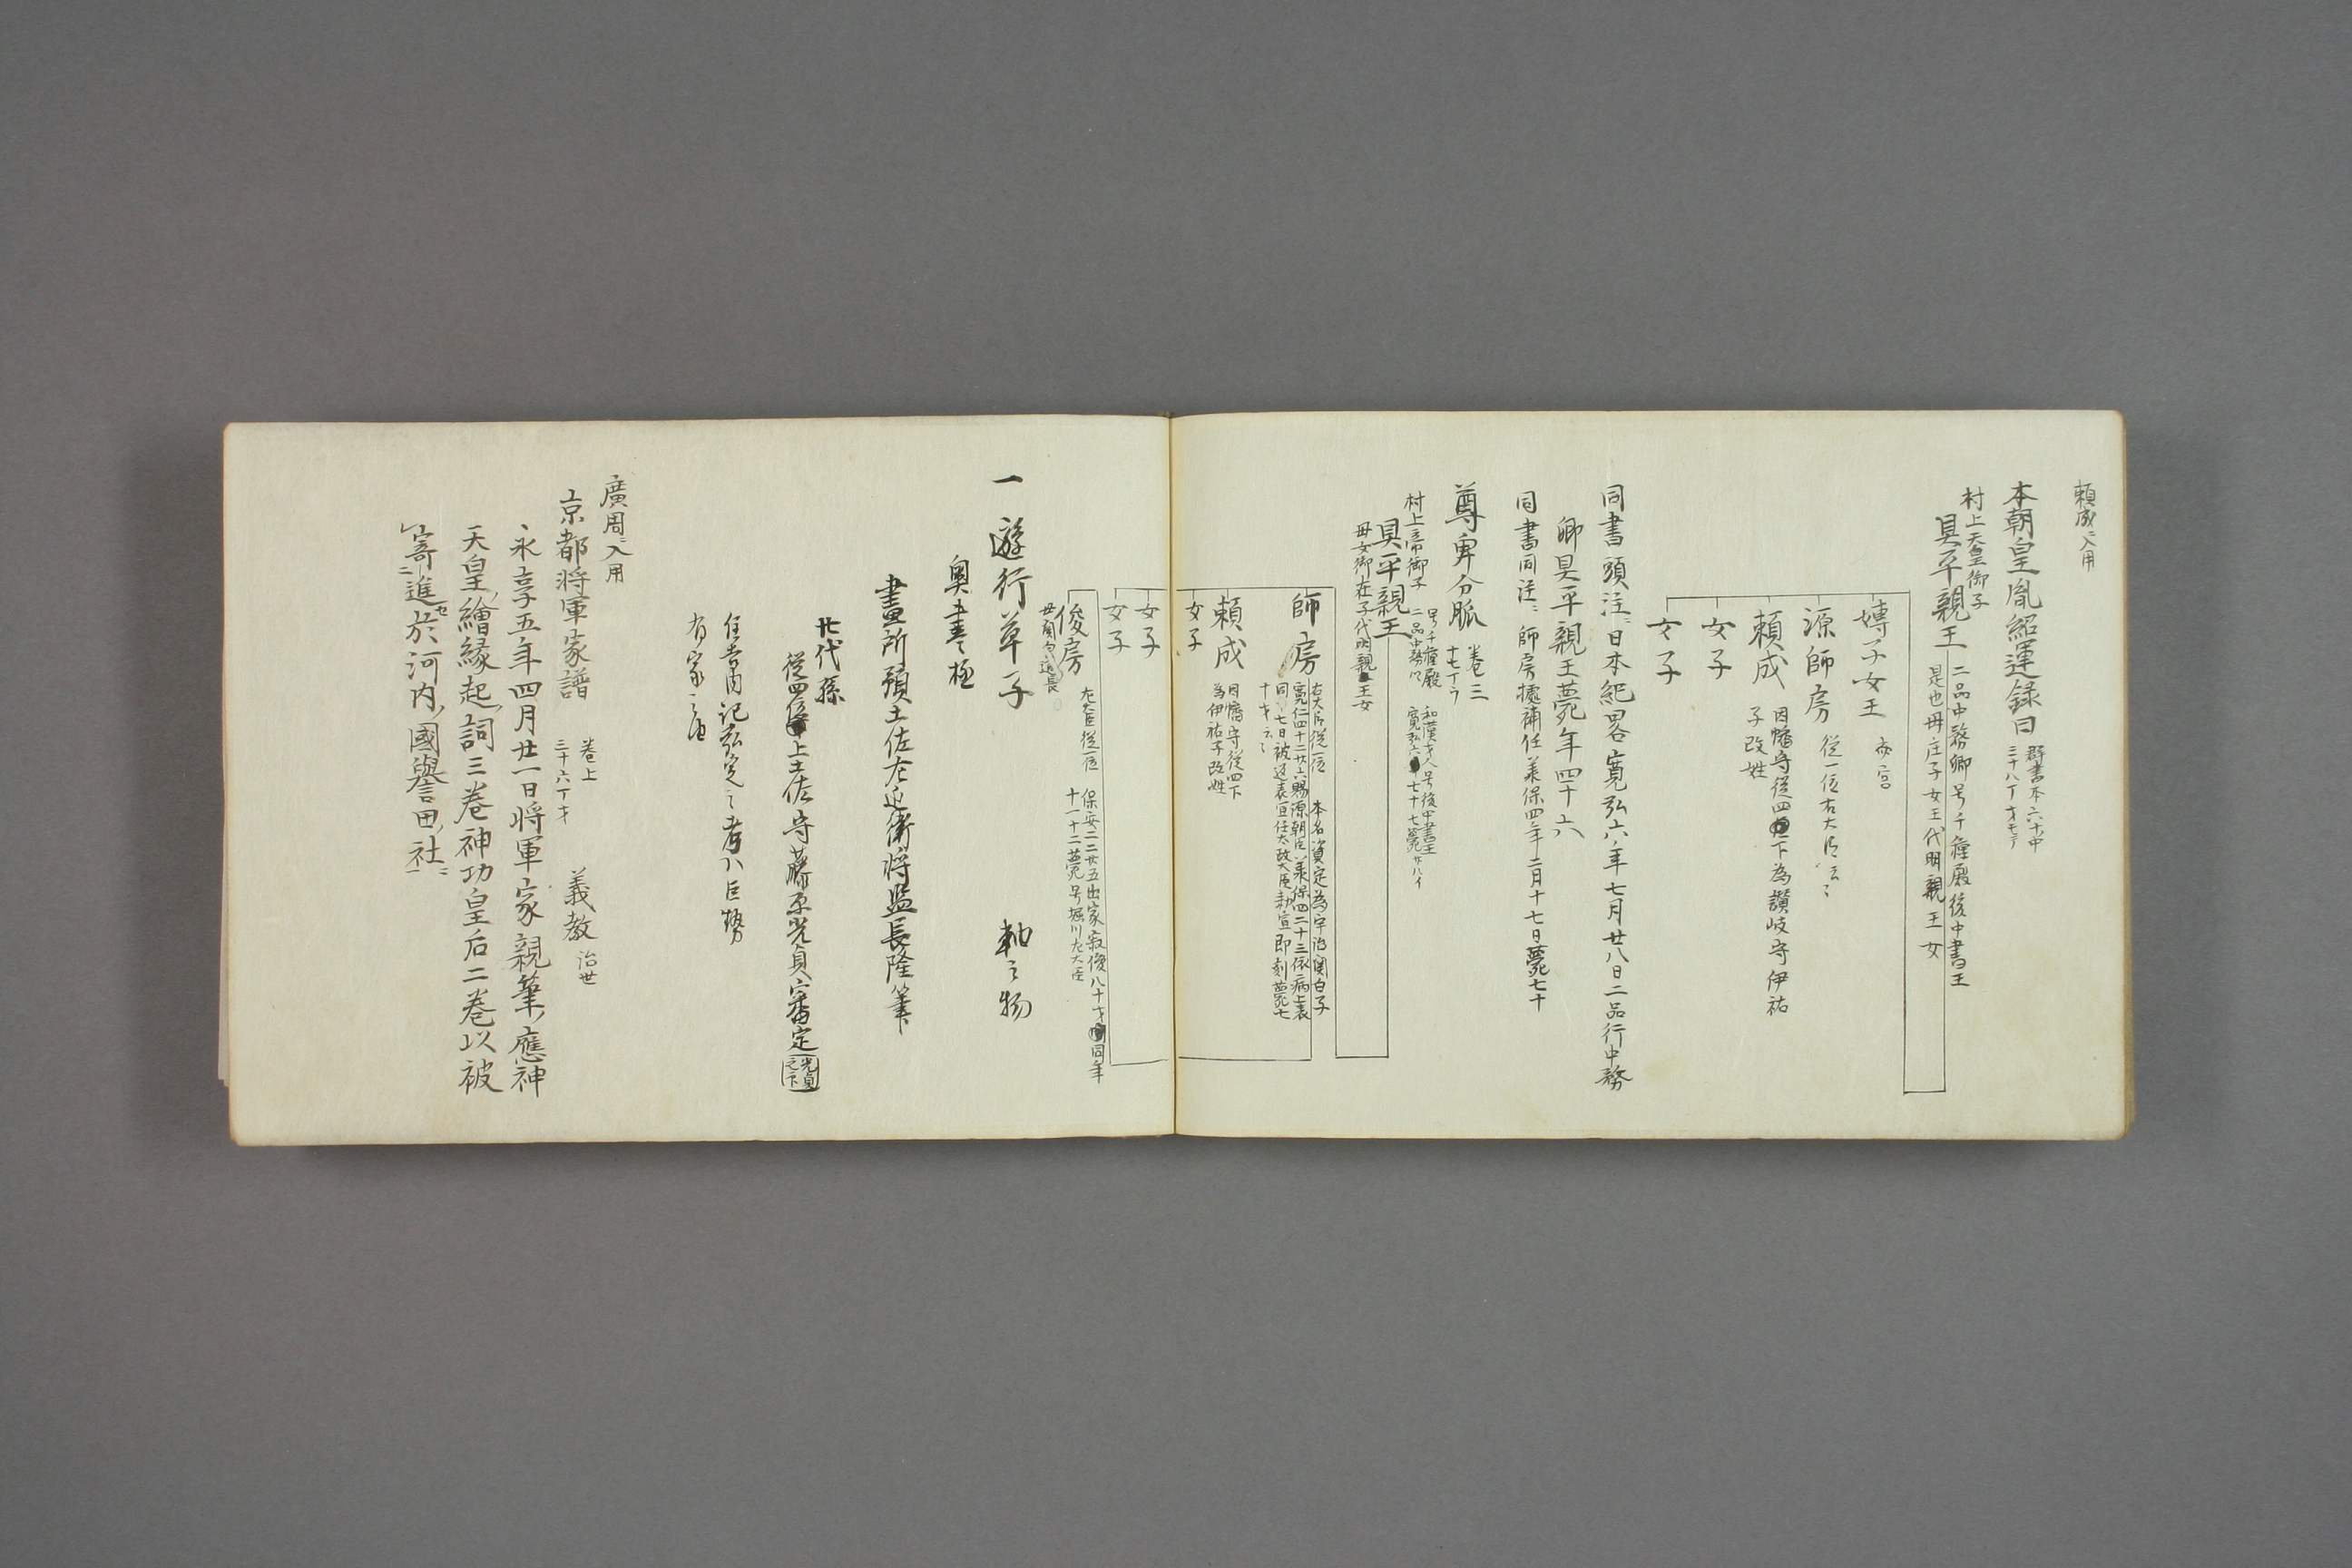 頼成ニ入用
本朝皇胤紹運録曰 群書本六十中
三十八丁オモテ
村上天皇御子
具平親王 二品中務卿号千種殿後中書王
是也母庄子女王代明親王女
女王
源師房 従一位右大臣云々
頼成 因幡守従四下為讃岐守伊祐
子改姓
女子
女子
同書頭注ニ日本紀畧寛弘六年七月廿八日二品行中務
卿具平親王薨年四十六
同書同注ニ師房據補任承保四年二月十七日薨七十
尊卑分脈 巻三
十七丁ウ
村上帝御子
具平親王 号千種殿 和漢才人号後中書王
二品中務
母女御荘子代明親王女
師房 右大臣従一位 本名資定為宇治関白子
寛仁四十二廿六賜源朝臣承保四二十三依病上表
同十七日被返表宣任太政大臣勅宣即刻薨七
十才云々
頼成 因幡守従四下
為伊祐子改姓
女子
女子
女子
俊房 左大臣従一位 保安二二廿五出家寂俊八十才同年
十一十二薨号堀川左大臣
一 遊行草子 軸之物
奥書ニ極
畫所預土佐左近衛将監長隆筆
廿代孫
従四上土佐守藤原光貞審定 光貞
之印
住吉内記弘定之考ハ巨勢
有家之由
廣周ニ入用
京都将軍家譜 巻上
三十六丁オ 義教 治世
永享五年四月廿一日将軍家親筆應神
天皇繪縁起詞三巻神功皇后二巻以被
寄進於河内國譽田社